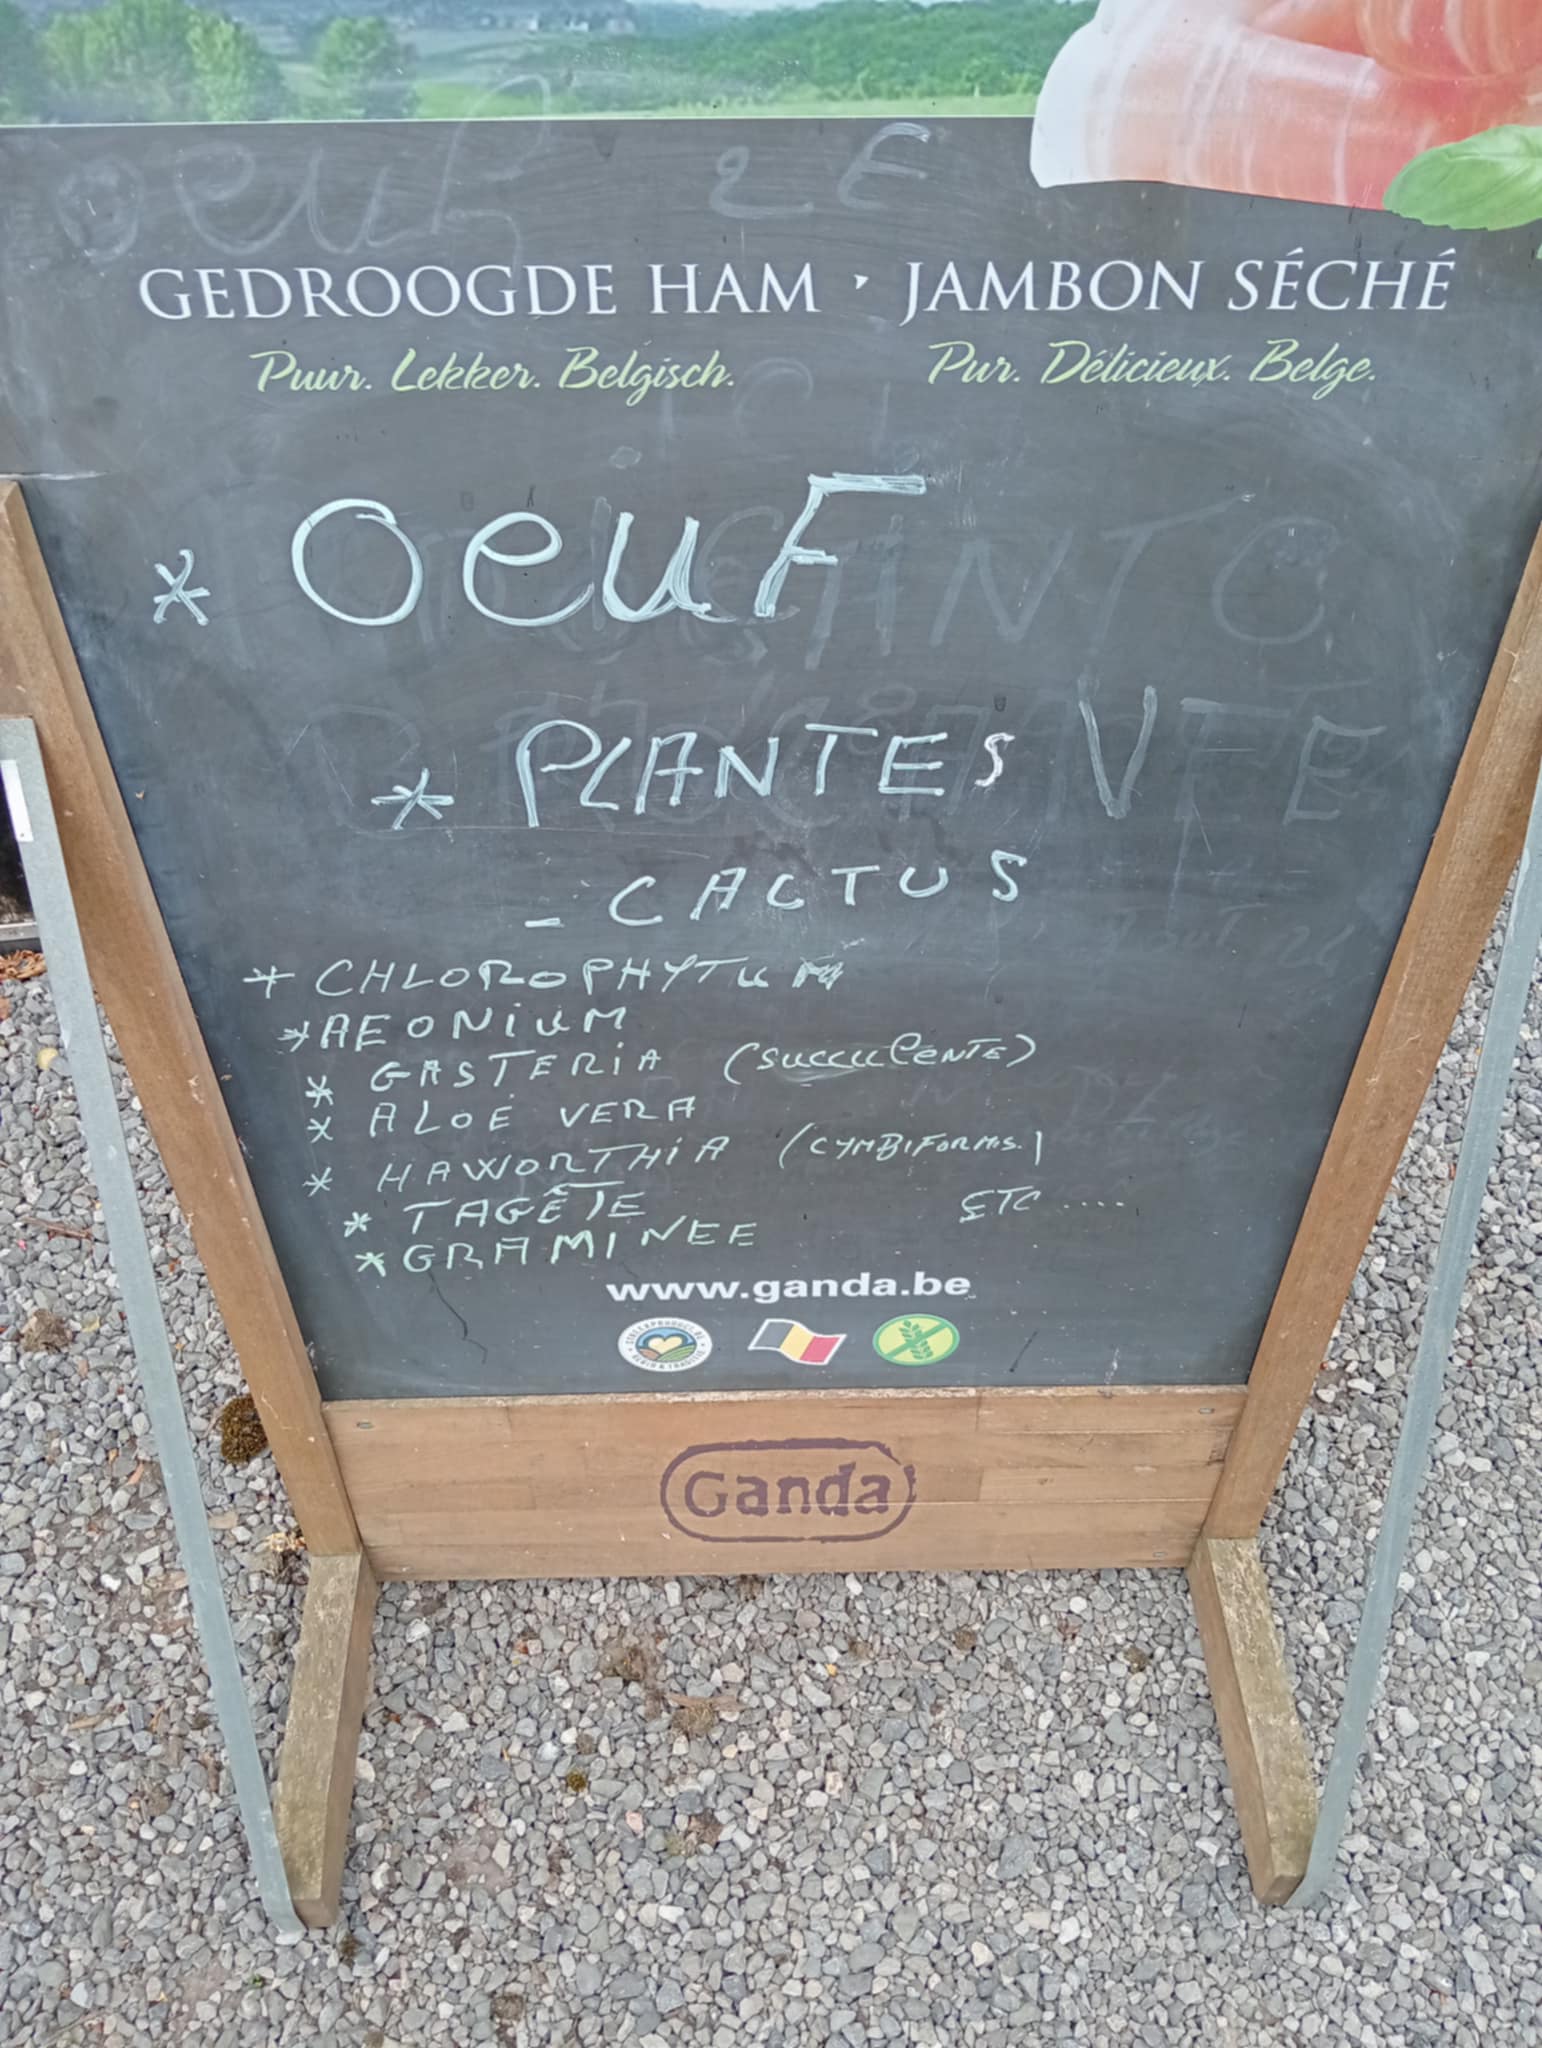 oeuF 2E
GEDROOGDE HAM · JAMBON SÉCHÉ
Puur. Lekker. Belgisch. Pur. Délicieux. Belge.
* OeuF
* PLANTES
- CACTUS
* CHLOROPHYTUM
* AEONiuM
* GASTERiA (succulente)
* ALOE VERA
* HAWORTHiA (CYMBIFORMIS.)
* TAGÊTE ETC ....
* GRAMINEE
www.ganda.be
Ganda